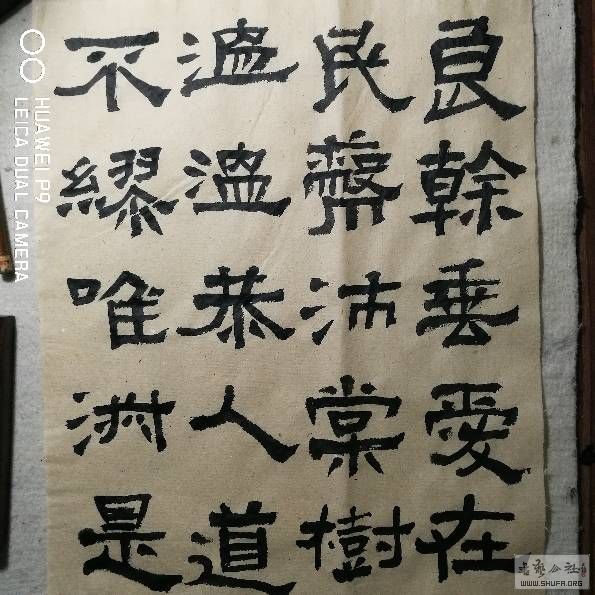 良幹垂愛在
民蔽沛棠樹
温温恭人道
不繆唯淑是
HUAWEI P9
LEICA DUAL CAMERA
WWW.SHUFA.ORG